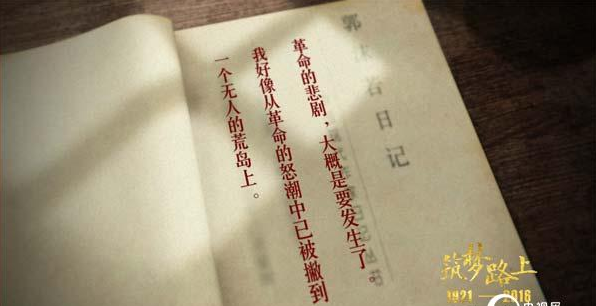 郭沫若日记
革命的悲剧，大概是要发生了。
我好像从革命的怒潮中已被撇到
一个无人的荒岛上。
筑梦路上
1921—2016